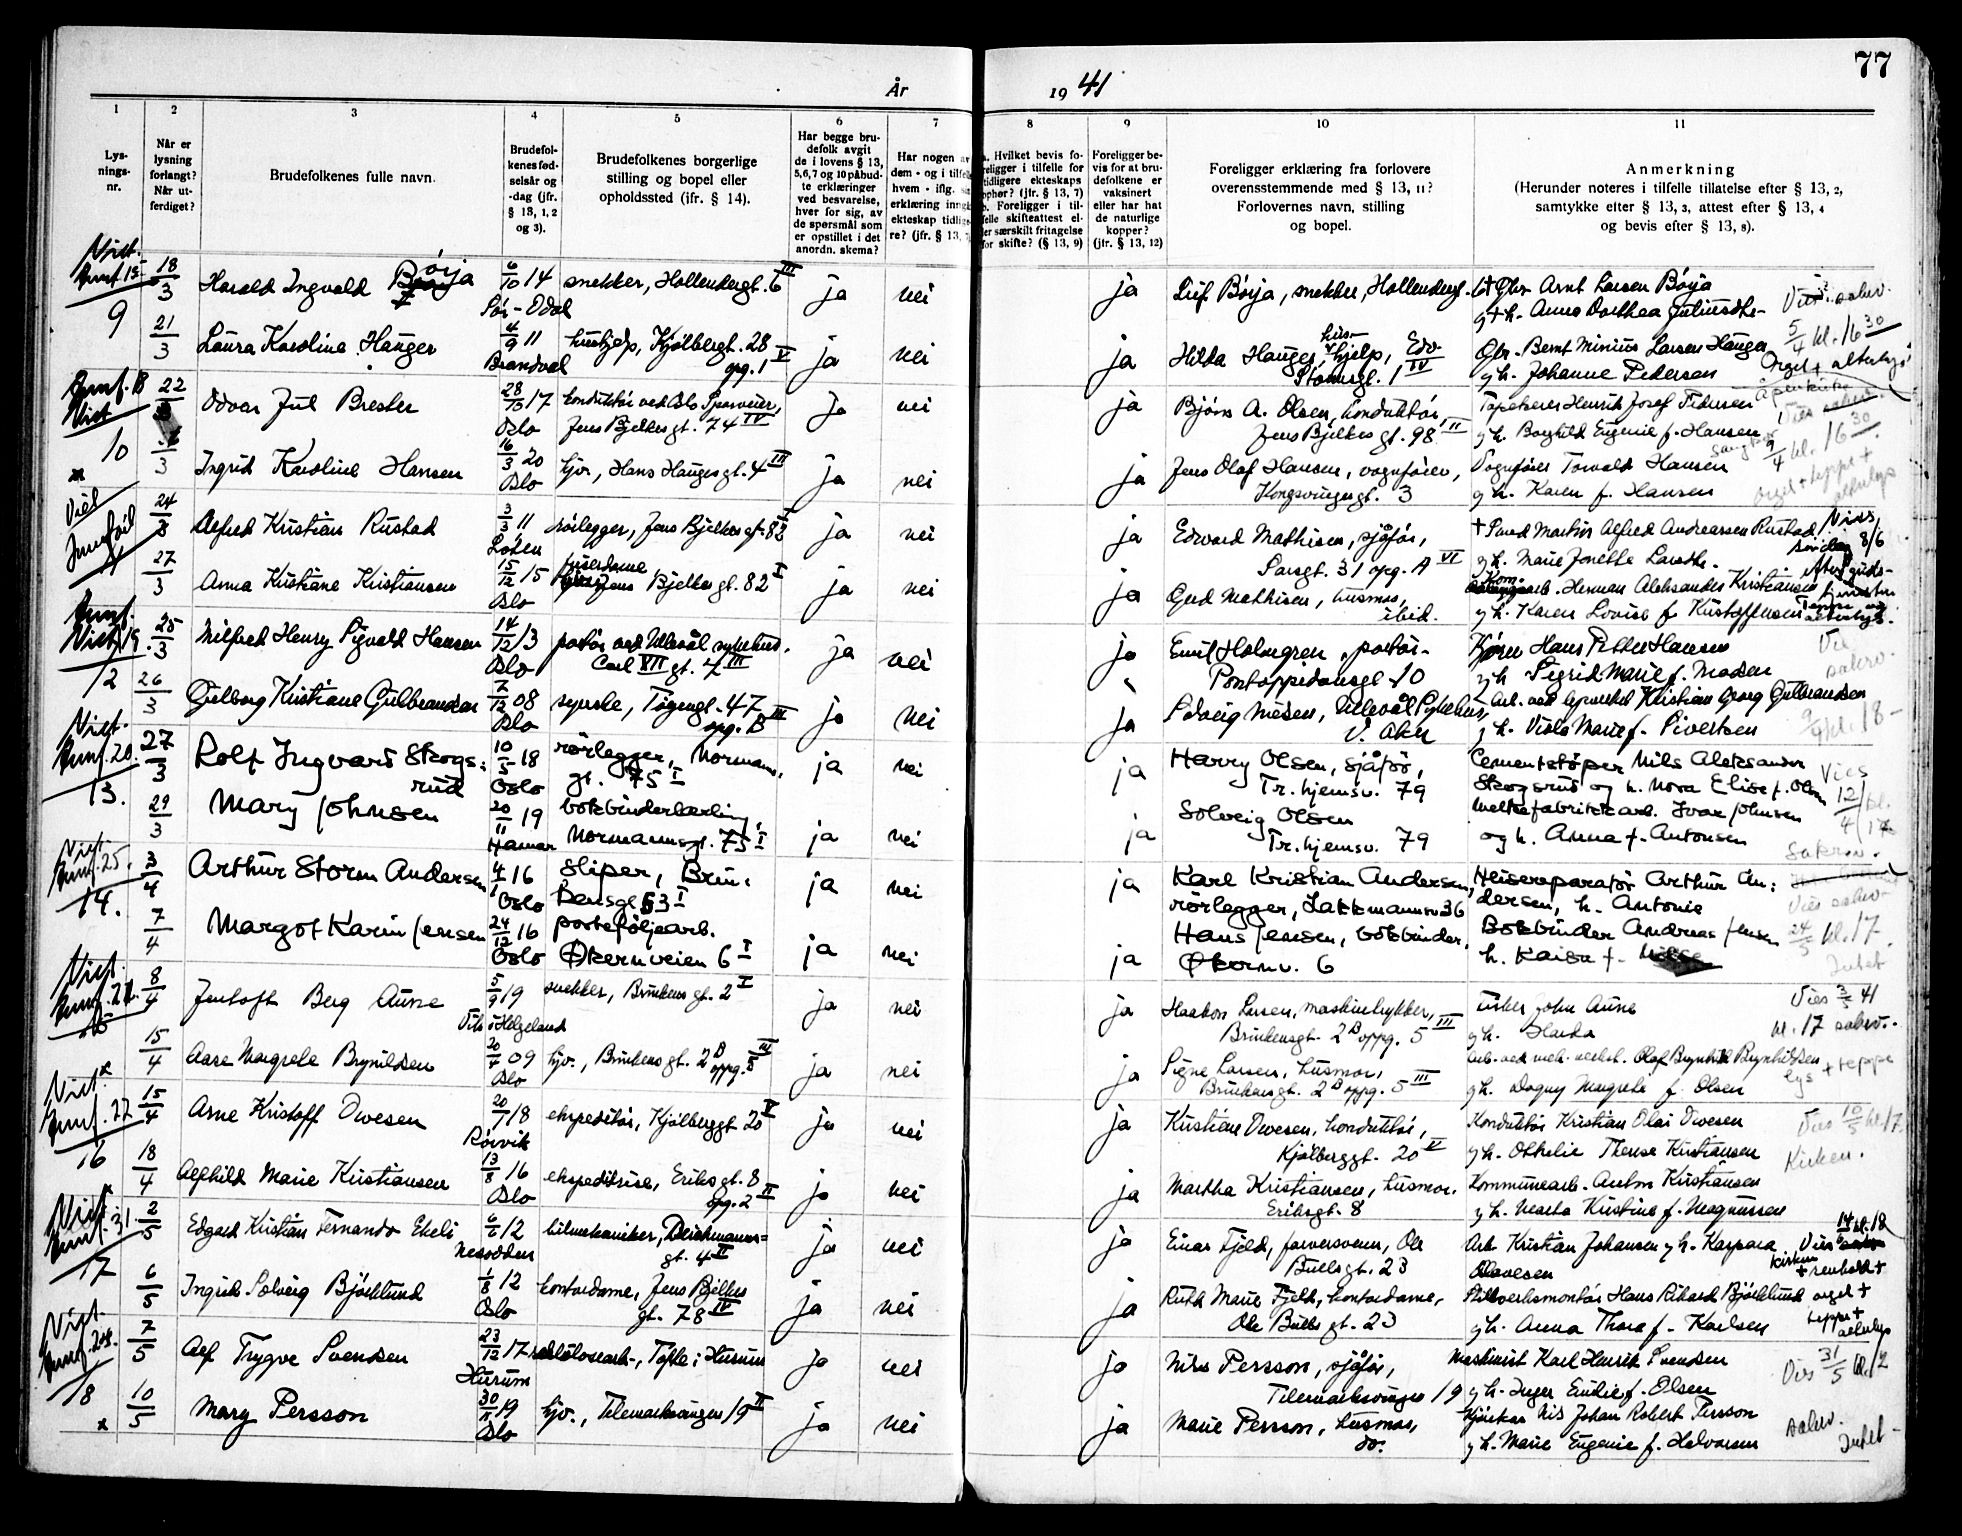 77
År 1941
1 2 3 4 5 6 7 8 9 10 11
Lys-
nings-
nr.
Når er
lysning
forlangt?
Når ut-
ferdiget?
Brudefolkenes fulle navn.
Brudefol-
kenes fød-
selsår og
-dag (jfr.
§ 13, 1, 2
og 3).
Brudefolkenes borgerlige
stilling og bopel eller
opholdssted (jfr. § 14).
Har begge bru-
defolk avgit
de i lovens § 13,
5, 6, 7 og 10 påbud-
te erklæringer
ved besvarelse,
hver for sig, av
de spørsmål som
er opstillet i det
anordn. skema?
Har nogen
dem - og i
hvem - iflg.
erklæring
ekteskap
re? (jfr. § 13,
Hvilket bevis fo-
religger i tilfelle for
tidligere ekteskaps
ophør? (jfr. § 13, 7)
b. Foreligger i til-
felle skifteattest el-
ler særskilt fritagelse
for skifte? (§ 13, 9)
Foreligger be-
vis for at bru-
defolkene er
vaksinert
eller har hat
de naturlige
kopper?
(jfr. § 13, 12)
Foreligger erklæring fra forlovere
overensstemmende med § 13, 11?
Forlovernes navn, stilling
og bopel.
Anmerkning
(Herunder noteres i tilfelle tillatelse efter § 13, 2,
samtykke efter § 13, 3, attest efter § 13, 4
og bevis efter § 13, 8).
9 18/3 Harald Ingvald Børja 6/10 14 snekker, Hollendergt. 6 III ja nei ja Leif Børja, snekker, Hollendergt. 6 Gbr. Arnt Larsen Børja
Sør-Odal
21/3 Laura Karoline Hauger 4/9 11 hushjelp, Kjølberggt. 28 V ja nei ja Hilda Hauger, hushjelp, Edv. Gbr. Bernt Minius Larsen Hauger 5/4 kl. 16 30
Brandval opg. 1 Stormsgt. 1 IV g h. Johanne Pedersen
10 22/3 Odvar Jul Brester 28/10 17 konduktør ved Oslo Sporveier, ja nei ja Bjørn A. Olsen, konduktør, Tapetserer Henrik Josef Pedersen
Oslo Jens Bjelkes gt. 74 IV Jens Bjelkes gt. 98 III g h. Borghild Eugenie f. Hansen
Ingrid Karoline Hansen 16/3 20 hjv., Hans Hauges gt. 4 III ja nei ja Jens Olaf Hansen, vognfører, Vognfører Torvald Hansen
Oslo Kongsvingergt. 3 g h. Karen f. Hansen
11 24/3 Alfred Kristian Rustad 3/3 11 rørlegger, Jens Bjelkes gt. 82 I ja nei ja Edvard Mathisen, sjåfør, Martin Alfred Andreassen Rustad
Løten Sarsgt. 31 opg. A VI g h. Marie Jonette Larsdtr.
27/3 Anna Kristiane Kristiansen 15/12 15 friserdame Jens Bjelkes gt. 82 I ja nei ja Gerd Mathisen, husmor, Kom.arb. Herman Aleksander Kristiansen
Oslo ibid. g h. Karen Lovise f. Kristoffersen
12 25/3 Milfred Henry Sigvald Hansen 14/12 13 portør ved Ullevål sykehus, ja nei ja Emil Holmgren, portør Hans Petter Hansen
Oslo Carl VII gt. 4 III Pontoppidansgt. 10 g h. Sigrid Marie f. Madsen
26/3 Gulborg Kristiane Gulbrandsen 7/12 08 syerske, Tøyengt. 47 III ja nei ja Solveig Nilsen, Ullevål Sykehus, Kristian Georg Gulbrandsen
Oslo opg. B V. Aker g h. Viola Marie f. Sivertsen
13. 27/3 Rolf Ingvart Skogs- 10/5 18 rørlegger, Normans, ja nei ja Harry Olsen, sjåfør, Cementstøper Nils Aleksander
rud Oslo gt. 75 I Tr.hjemsv. 79 Skogsrud og h. Nora Elise f. Olsen
29/3 Mary Johnsen 20/11 19 bokbinderlærling, ja nei ja Solveig Olsen Melkefabrikkarb. Ivar Johnsen
Hamar Normannsgt. 75 I Tr.hjemsv. 79 og h. Anna f. Antonsen
14. 3/4 Arthur Storm Andersen 4/1 16 Sliper, Brin- ja nei ja Karl Kristian Andersen, Heisereparatør Arthur An-
Oslo kensgt 53 I rørlegger, Lakkmannsv 36 dersen, h. Antonie
7/4 Margot Karin Jensen 24/12 16 porteføljearb. ja nei ja Hans Jensen, bokbinder, Bokbinder Andreas Jensen 24/5 kl. 17.
Oslo Økernveien 6 I Økernv. 6 h. Kaisa f.
15 8/4 Jentoft Berg Aune 5/9 19 snekker, Brinkens gt. 2 I ja nei ja Haakon Larsen, maskintrykker, Fisker John Aune Vies 3/5 41
Vik i Helgeland Brinkensgt. 2 B oppg. 5 III g h. Harda kl. 17 sakrv.
15/4 Aase Margrete Brynildsen 20/4 09 hjv., Brinkens gt. 2 B oppg. 5 III ja nei ja Signe Larsen, husmor, Arb. ved mek. verkst. Olaf Brynhild Brynhildsen lys + teppe
Oslo Brinkensgt. 2 B oppg. 5 III g h. Dagny Margrete f. Olsen
16 15/4 Arne Kristoff Ovesen 20/7 18 ekspeditør, Kjølberggt. 20 V ja nei ja Kristian Ovesen, konduktør, Konduktør Kristian Olai Ovesen Vies 10/5 kl. 17.
Rørvik Kjølberggt. 20 V g h. Othelie Therese Kristiansen Kirken.
18/4 Alfhild Marie Kristiansen 13/8 16 ekspeditrise, Eriks gt. 8 ja nei ja Martha Kristiansen, husmor, Kommunearb. Anton Kristiansen
Oslo Opg. 2 II Eriksgt. 8 g h. Marta Kristine f. Magnussen
17 2/5 Edgard Kristian Fernando Ekeli 6/6 12 bilmekaniker, Deichmanns- ja nei ja Einar Fjeld, farversvenn, Ole Arb. Kristian Johansen g h. Kaspara
Nesodden gt. 4 II Bullsgt. 23 Olavesen
6/5 Ingrid Solveig Bjørklund 1/8 12 kontordame, Jens Bjelkes ja nei ja Ruth Marie Fjeld, kontordame, Stillverksmontør Hans Rikard Bjørklund orgel +
Oslo gt. 78 IV Ole Bulls gt. 23 g h. Anna Thora f. Karlsen teppe +
18 7/5 Alf Trygve Svendsen 23/12 17 cellulosearb., Tofte i Hurum ja nei ja Nils Persson, sjåfør, Maskinist Karl Henrik Svendsen Vies 31/5 kl. 12
Hurum Telemarksvingen 19 g h. Inger Emilie f. Olsen
10/5 Mary Persson 30/11 19 hjv., Telemarksvingen 19 II ja nei ja Marie Persson, husmor, Kjørekar Nils Johan Robert Persson sakrv.
Oslo do. g h. Marie Eugenie f. Halvorsen Intet